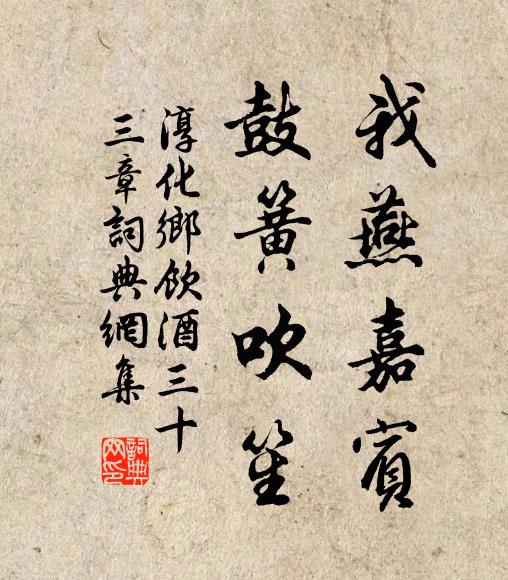 我燕嘉賓
鼓簧吹笙
淳化鄉飲酒三十
三章詞典網集
詞典网印